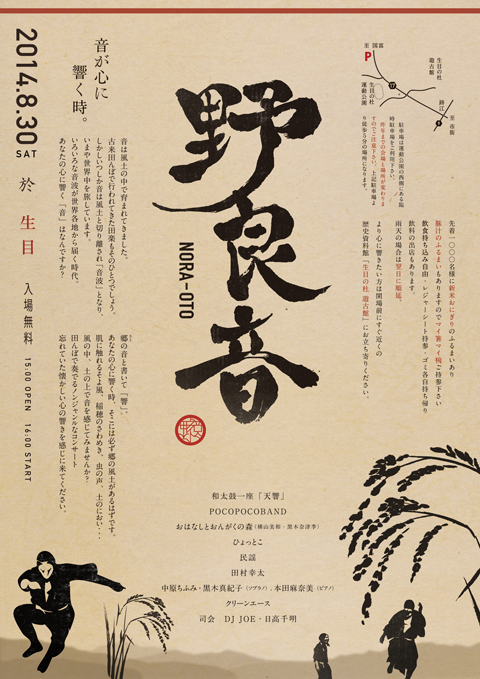 野良音
NORA-OTO
2014.8.30 SAT 於 生目 入場無料 15:00 OPEN 16:00 START
音が心に
響く時。
音は風土の中で育まれてきました。
古来田んぼで行われてきた田楽もそのひとつでしょう。
しかしいつしか音は風土と切り離され「音波」となり、
いまや世界中を旅しています。
いろいろな音波が世界各地から届く時代、
あなたの心に響く「音」はなんですか?
郷の音と書いて「響」、
あなたの心に響く時、そこは必ず郷の風土があるはずです。
肌に触れるそよ風、稲穂のさわめき、虫の声、土のにおい・・・
風の中、土の上で音を感じてみませんか?
田んぼで奏でるノンジャンルなコンサート
忘れていた懐かしい心の響きを感じに来てください。
至 国富
P
生目の杜
運動公園
生目の杜
遊古館
跡江
至 市街
駐車場は運動公園の西側にある臨
時駐車場をご利用下さい。
昨年までの会場と場所が変わりま
すのでご注意下さい。上記駐車場よ
り徒歩5分の場所になります。
先着一〇〇〇名様に新米おにぎりのふるまいあり
豚汁のふるまいもありますのでマイ箸マイ椀ご持参下さい
飲食持ち込み自由・レジャーシート持参・ゴミ各自持ち帰り
飲料の出店もあります。
雨天の場合は翌日に順延。
より心に響きたい方は開場前にすぐ近くの
歴史資料館「生目の杜 遊古館」にお立ち寄りください。
和太鼓一座「天響」
POCOPOCOBAND
おはなしとおんがくの森(横山美和・黒木奈津季)
ひょっとこ
民謡
田村幸太
中原ちふみ・黒木真紀子(ソプラノ)、本田麻奈美(ピアノ)
クリーンエース
司会 DJ JOE・日高千明